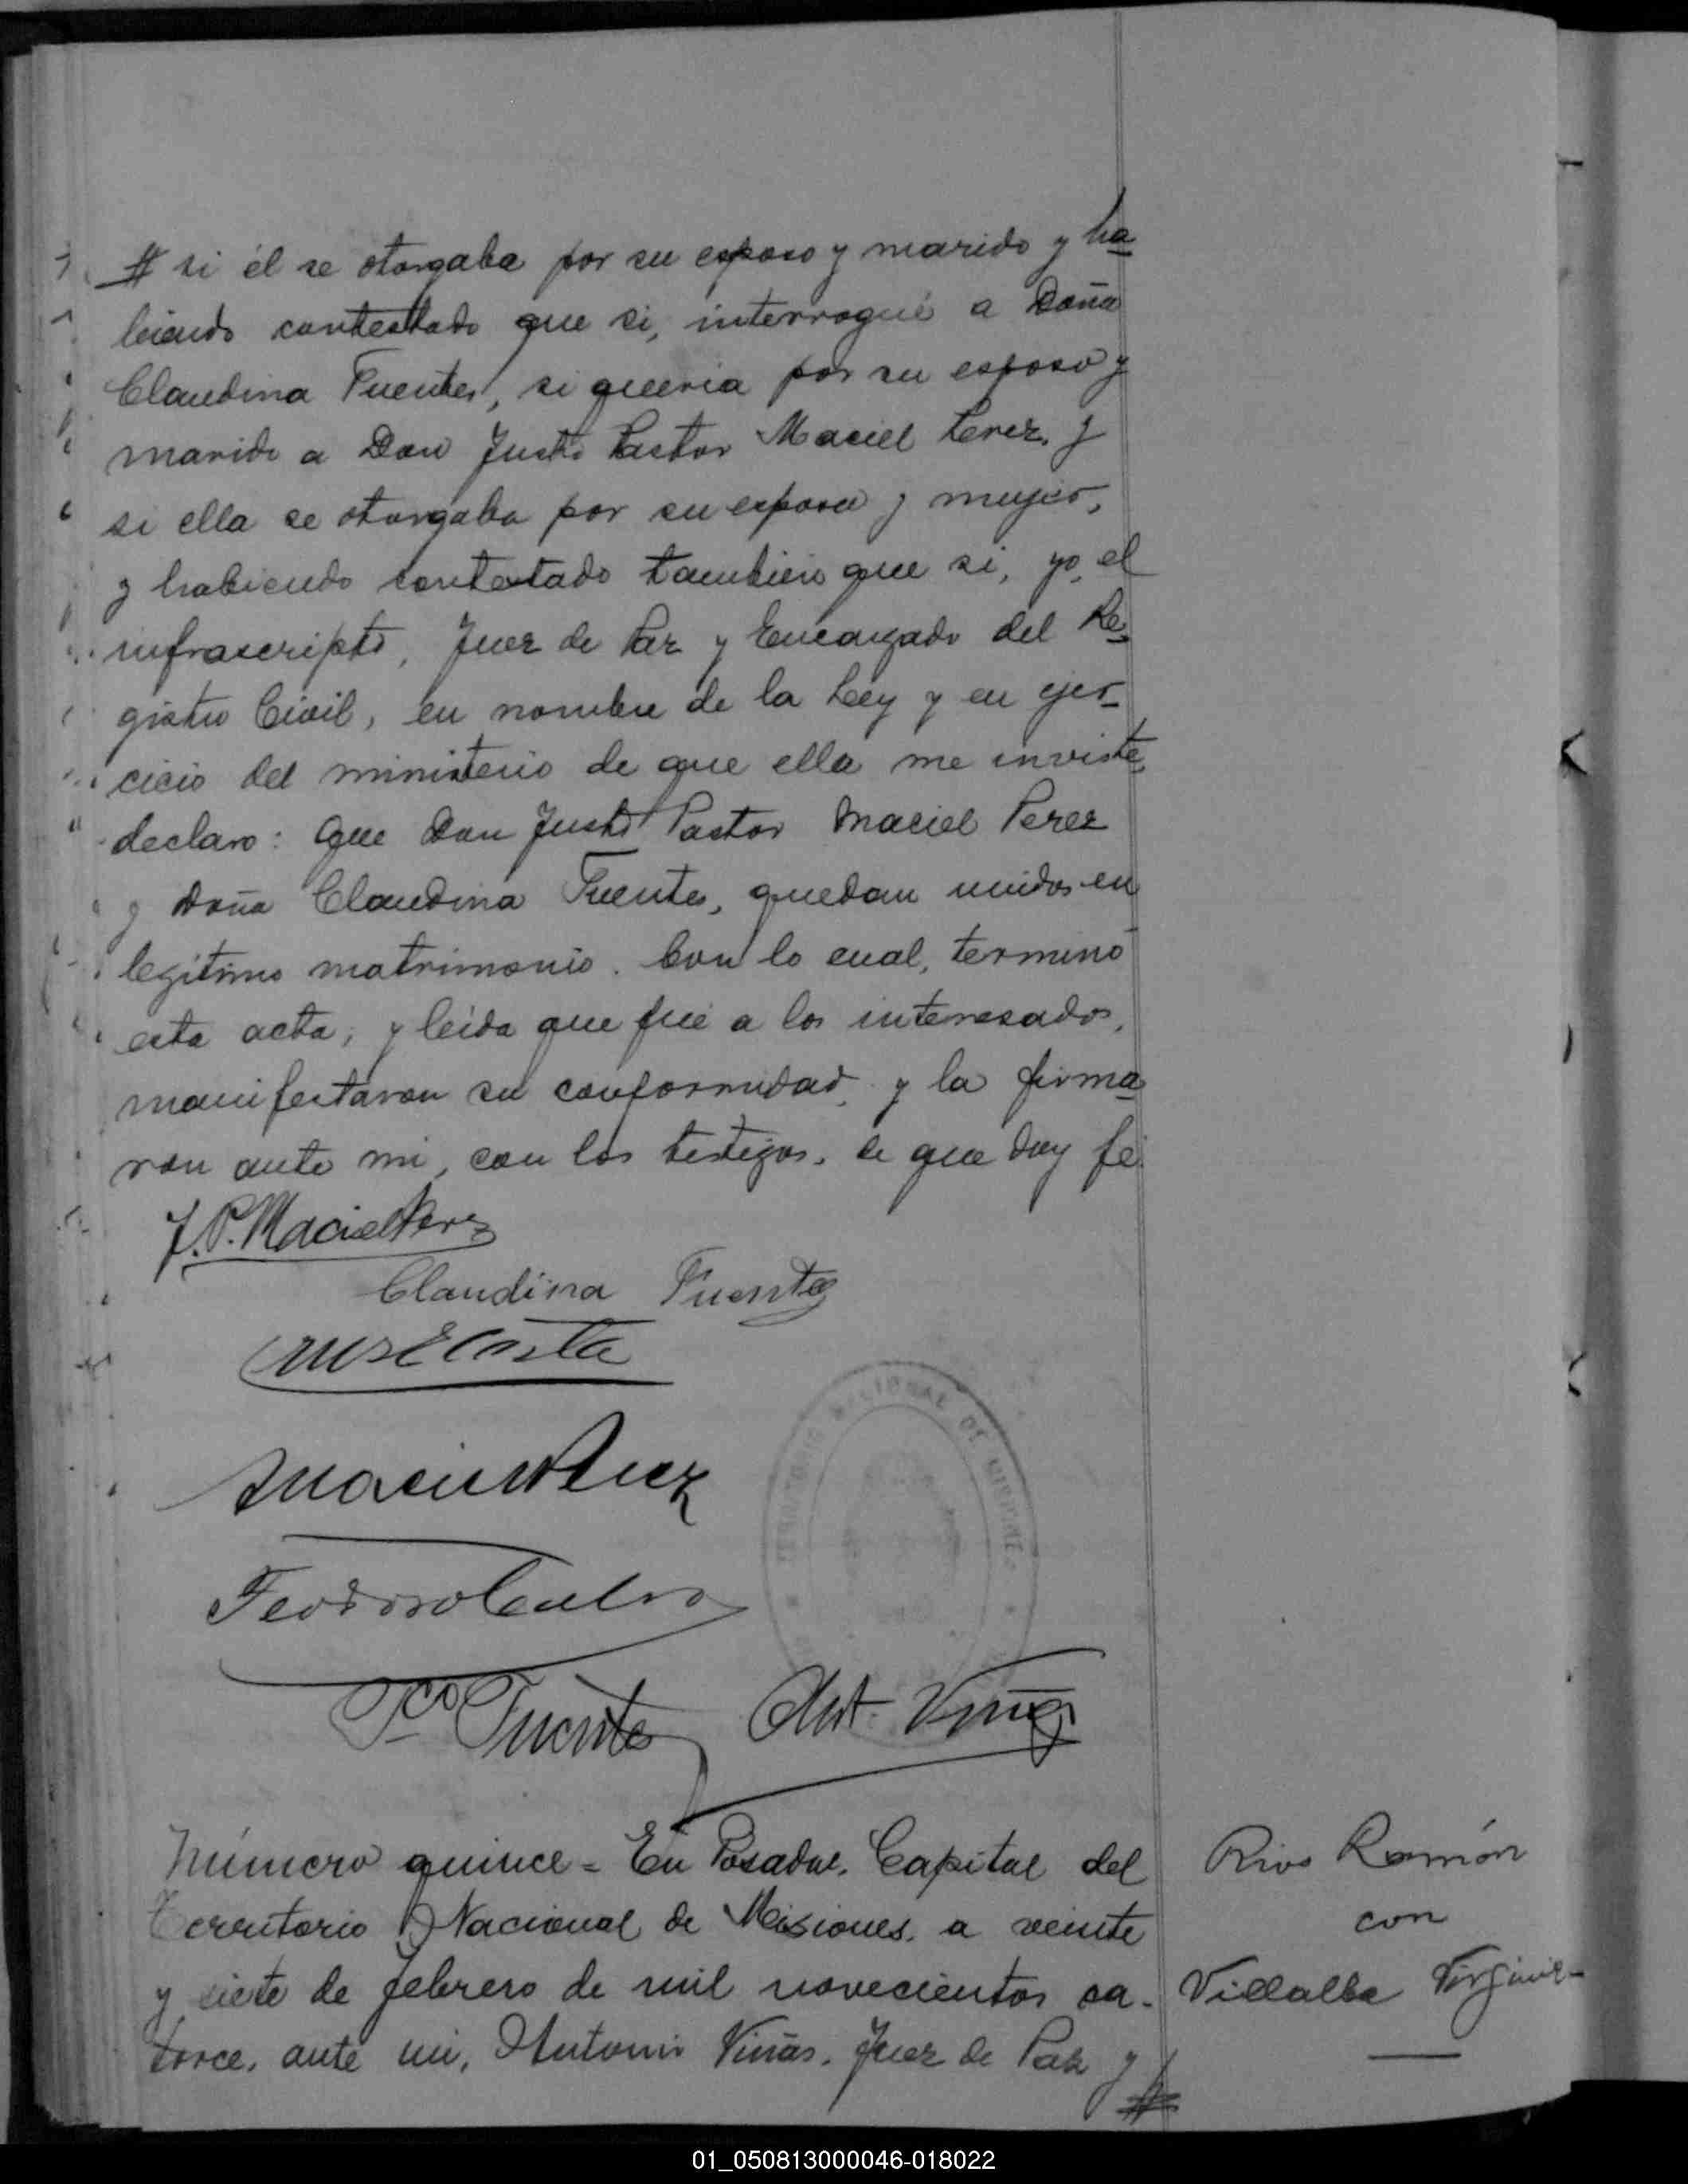 # si él se otorgaba por su esposo y marido y ha
biendo contestado que si, interrogué a Doña
Claudina Fuentes, si queria por su esposo y
marido a Don Justo Pastor Maciel Perez, y
si ella se otorgaba por su esposa y mujer,
y habiendo contestado tambien que si, yo, el
infrascripto, Juez de Paz y Encargado del Re-
gistro Civil, en nombre de la Ley y en ejer-
cicio del ministerio de que ella me inviste,
declaro: Que Don Justo Pastor Maciel Perez
y Doña Claudina Fuentes, quedan unidos en
legítimo matrimonio. Con lo cual, terminó
esta acta, y leída que fué a los interesados,
manifestaron su conformidad, y la firma
ron ante mi, con los testigos, de que doy fé.
J. P. Maciel Perez
Claudina Fuentes
Teodoro
Fco Fuentes Ant. Viñas
TERRITORIO NACIONAL DE MISIONES
Número quince = En Posadas, Capital del
Territorio Nacional de Misiones, a veinte
y siete de febrero de mil novecientos ca-
torce, ante mi, Antonio Viñas, Juez de Paz y #
Rios Ramón
con
Villalba Virginia
01_050813000046-018022